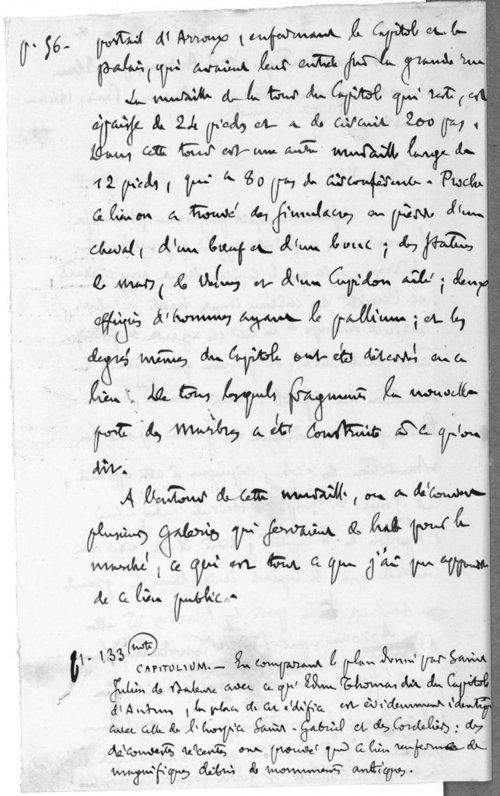 p. 56 - portail d'Arroux, enfermant le Capitole et le
palais, qui avaient leur entrée sur la grande rue
La muraille de la tour du Capitol qui reste, est
épaisse de 24 pieds et a de circuit 200 pas.
Dans cette tour est une autre muraille large de
12 pieds, qui a 80 pas de circonférence. Proche
ce lieu on a trouvé des simulacres en pierre d'un
cheval, d'un bœuf et d'un bouc ; des statues
de Mars, de Vénus et d'un Cupidon ailé ; deux
effigies d'hommes ayant le pallium ; et les
degrés mêmes du Capitole ont été déterrés en ce
lieu. De tous lesquels fragments la nouvelle
porte des Marbres a été construite à ce qu'on
dit.
A l'entour de cette muraille, on a découvert
plusieurs galeries qui servaient de halle pour le
marché, ce qui est tout ce que j'ai pu apprendre
de ce lieu public.
p. 133 note
CAPITOLIUM. - En comparant le plan donné par Saint
Julien de Baleure avec ce qu'Edme Thomas dit du Capitole
d'Autun, la place de cet édifice est évidemment identique
avec celle de l'hospice Saint-Gabriel et des Cordeliers : des
découvertes récentes ont prouvé que ce lieu renferme de
magnifiques débris de monuments antiques.